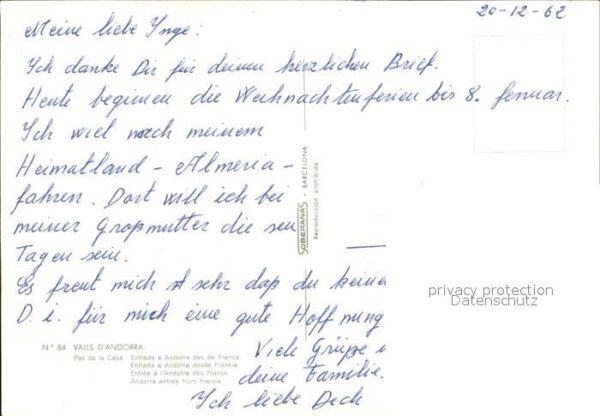 20-12-62
Meine liebe Ynge:
Ich danke Dir für deinen herzlichen Brief.
Heute beginnen die Weihnachtenferien bis 8. Jenuar.
Ich wiel nach meinem
Heimatland - Almeria -
fahren. Dort will ich bei
meiner Großmutter die sen
Tagen sein.
Es freut mich sehr daß du keine
D. i. für mich eine gute Hoffnung
Viele Grüße
deine Familie.
Ich liebe Dich
SOBERANAS - BARCELONA
Reproducción prohibida
privacy protection
Datenschutz
N.º 84 VALLS D'ANDORRA.
Pas de la Casa. Entrada a Andorra des de França.
Entrada a Andorra desde Francia.
Entrée a l'Andorre dès France.
Andorra entrée from France.